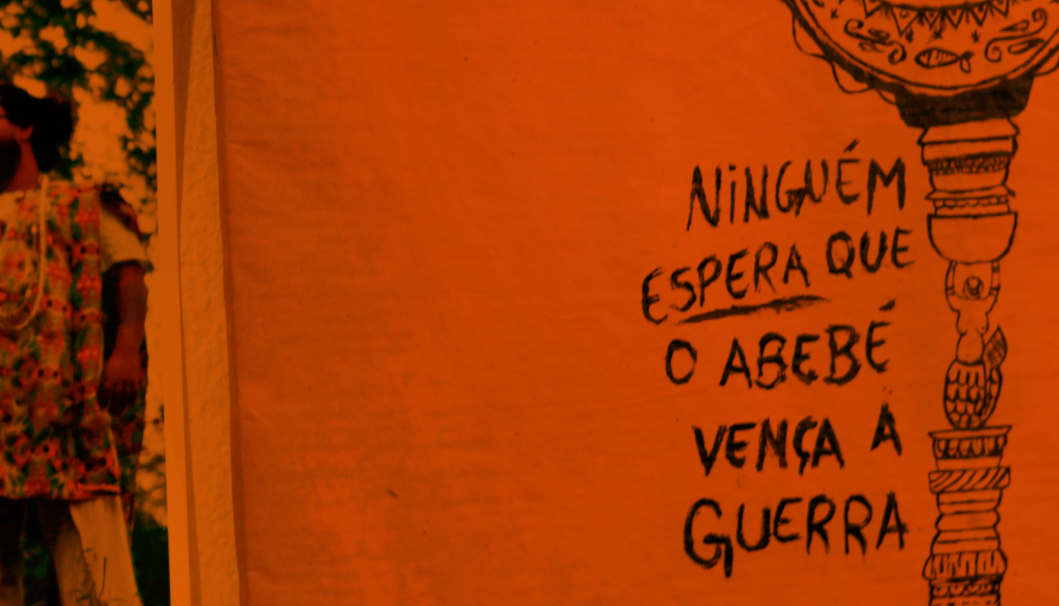 NINGUÉM
ESPERA QUE
O ABEBÉ
VENÇA A
GUERRA